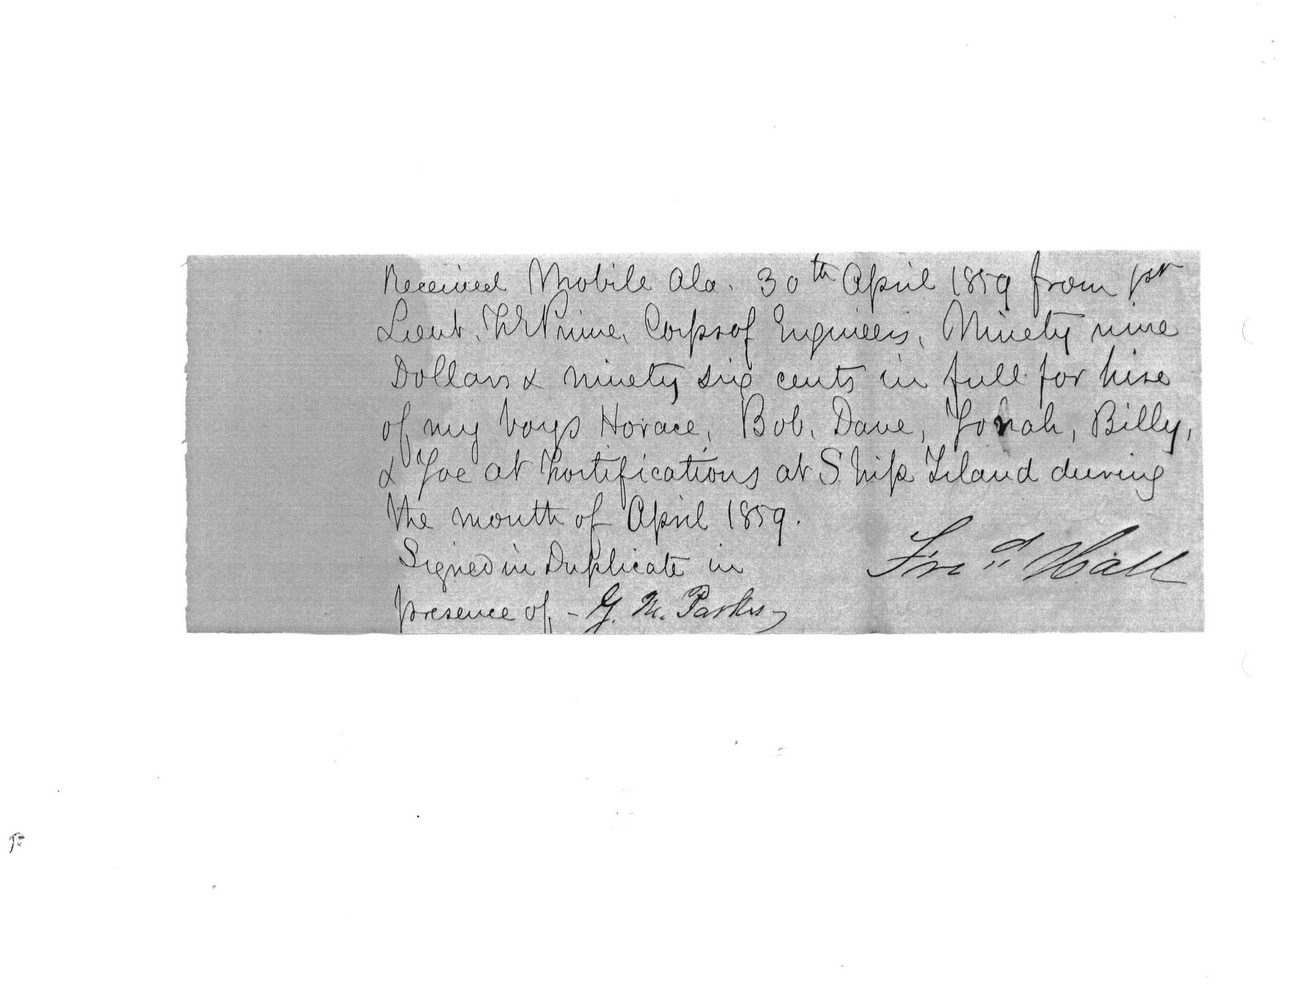 Received Mobile Ala. 30th April 1859 from 1st
Lieut. F. E. Prime, Corps of Engineers, Ninety nine
Dollars & ninety six cents in full for hire
of my boys Horace, Bob, Dave, Jonah, Billy,
& Joe at Fortifications at Ship Island during
the month of April 1859.
Signed in Duplicate in
presence of, - G. M. Parker
Fred Hall